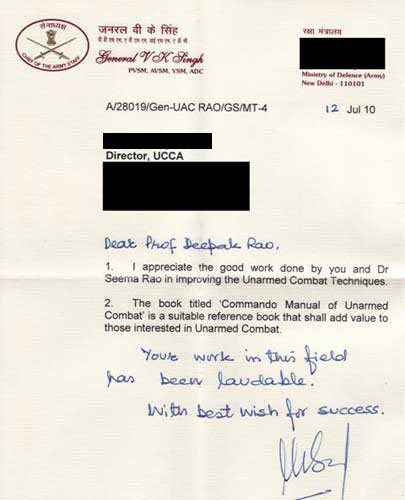 सेनाध्यक्ष
CHIEF OF THE ARMY STAFF
जनरल वी के सिंह
General V K Singh
PVSM, AVSM, YSM, ADC
रक्षा मंत्रालय
Ministry of Defence (Army)
New Delhi - 110101
A/28019/Gen-UAC RAO/GS/MT-4
12 Jul 10
Director, UCCA
Dear Prof Deepak Rao,
1. I appreciate the good work done by you and Dr
Seema Rao in improving the Unarmed Combat Techniques.
2. The book titled 'Commando Manual of Unarmed
Combat' is a suitable reference book that shall add value to
those interested in Unarmed Combat.
Your work in this field
has been laudable.
With best wish for success.